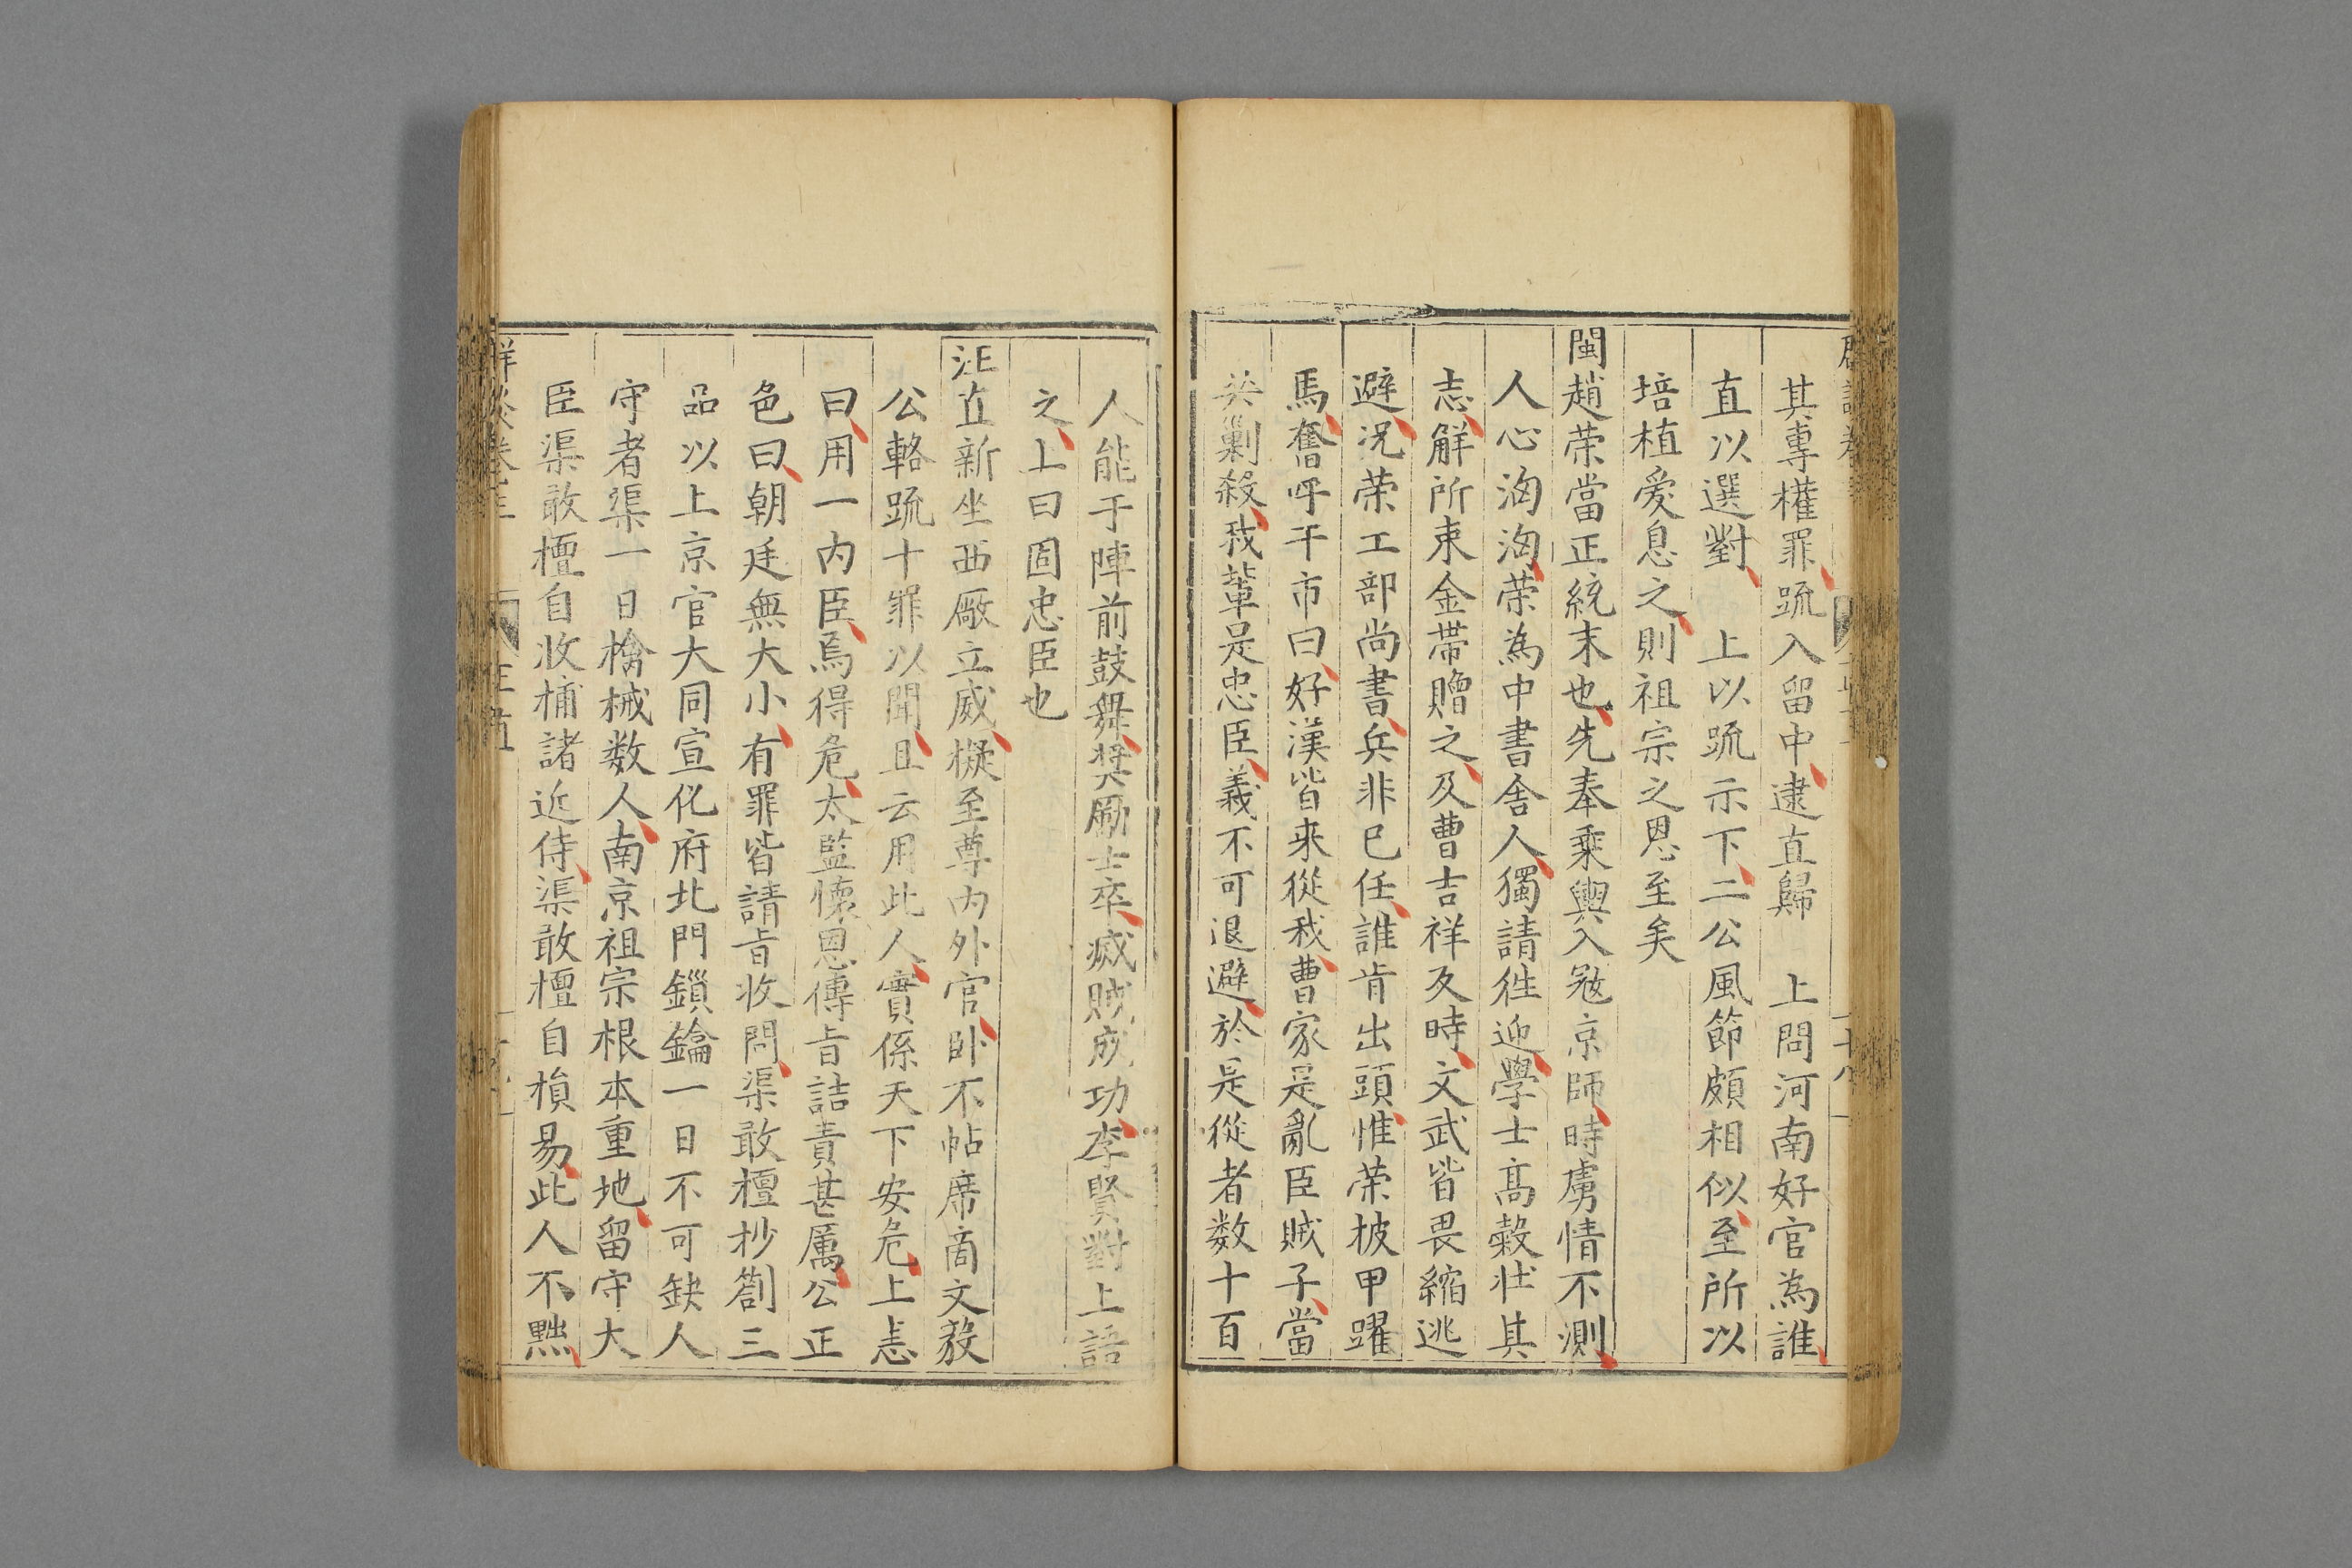 其專權罪疏入留中逮直歸　上問河南好官為誰
直以選對　上以疏示下二公風節頗相似至所以
培植愛息之則祖宗之恩至矣
閩趙荣當正統末也先奉乗輿入宼京師時虜情不測
人心洶洶荣為中書舎人獨請徃迎學士髙穀壮其
志解所束金帶贈之及曹吉祥反時文武皆畏縮逃
避況荣工部尚書兵非巳任誰肯出頭惟荣披甲躍
馬奮呼于市曰好漢皆来從我曹家是亂臣賊子當
共剿殺我軰是忠臣義不可退避於是從者数十百
人能于陣前鼓舞奬勵士卒滅賊成功李賢對上語
之上曰固忠臣也
汪直新坐西厰立威擬至尊内外官卧不帖席啇文毅
公輅疏十罪以聞且云用此人實係天下安危上恚
曰用一内臣焉得危太監懷恩傳㫖詰責甚厲公正
色曰朝廷無大小有罪皆請㫖收問渠敢檀抄劄三
品以上京官大同宣化府北門鎖鑰一日不可缺人
守者渠一日檎械数人南京祖宗根本重地留守大
臣渠敢檀自收捕諸近侍渠敢檀自損易此人不黜